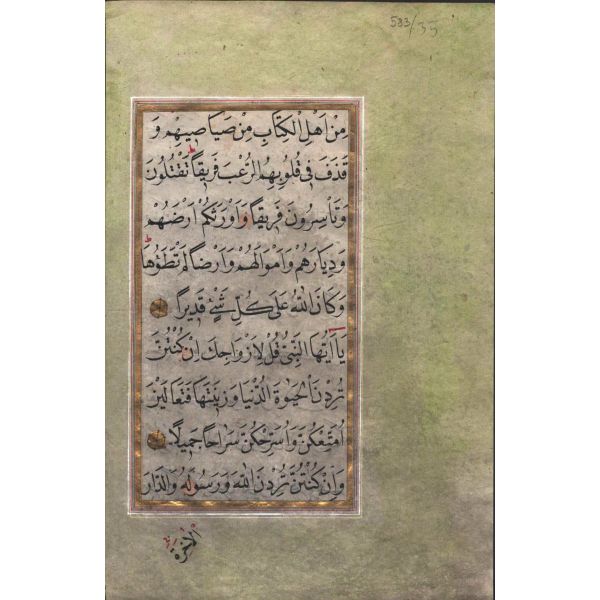 583/35
مِنْ اَهْلِ الْكِتَابِ مِنْ صَيَاصِيهِمْ وَ
قَذَفَ فِي قُلُوبِهِمُ الرُّعْبَ فَرِيقًا تَقْتُلُونَ
وَتَأْسِرُونَ فَرِيقًا وَاَوْرَثَكُمْ اَرْضَهُمْ
وَدِيَارَهُمْ وَاَمْوَالَهُمْ وَاَرْضًا لَمْ تَطَؤُهَا
وَكَانَ اللّٰهُ عَلَى كُلِّ شَيْءٍ قَدِيرًا
يَا اَيُّهَا النَّبِيُّ قُلْ لِاَزْوَاجِكَ اِنْ كُنْتُنَّ
تُرِدْنَ الْحَيٰوةَ الدُّنْيَا وَزِينَتَهَا فَتَعَالَيْنَ
اُمَتِّعْكُنَّ وَاُسَرِّحْكُنَّ سَرَاحًا جَمِيلًا
وَاِنْ كُنْتُنَّ تُرِدْنَ اللّٰهَ وَرَسُولَهُ وَالدَّارَ
الْاٰخِرَةَ